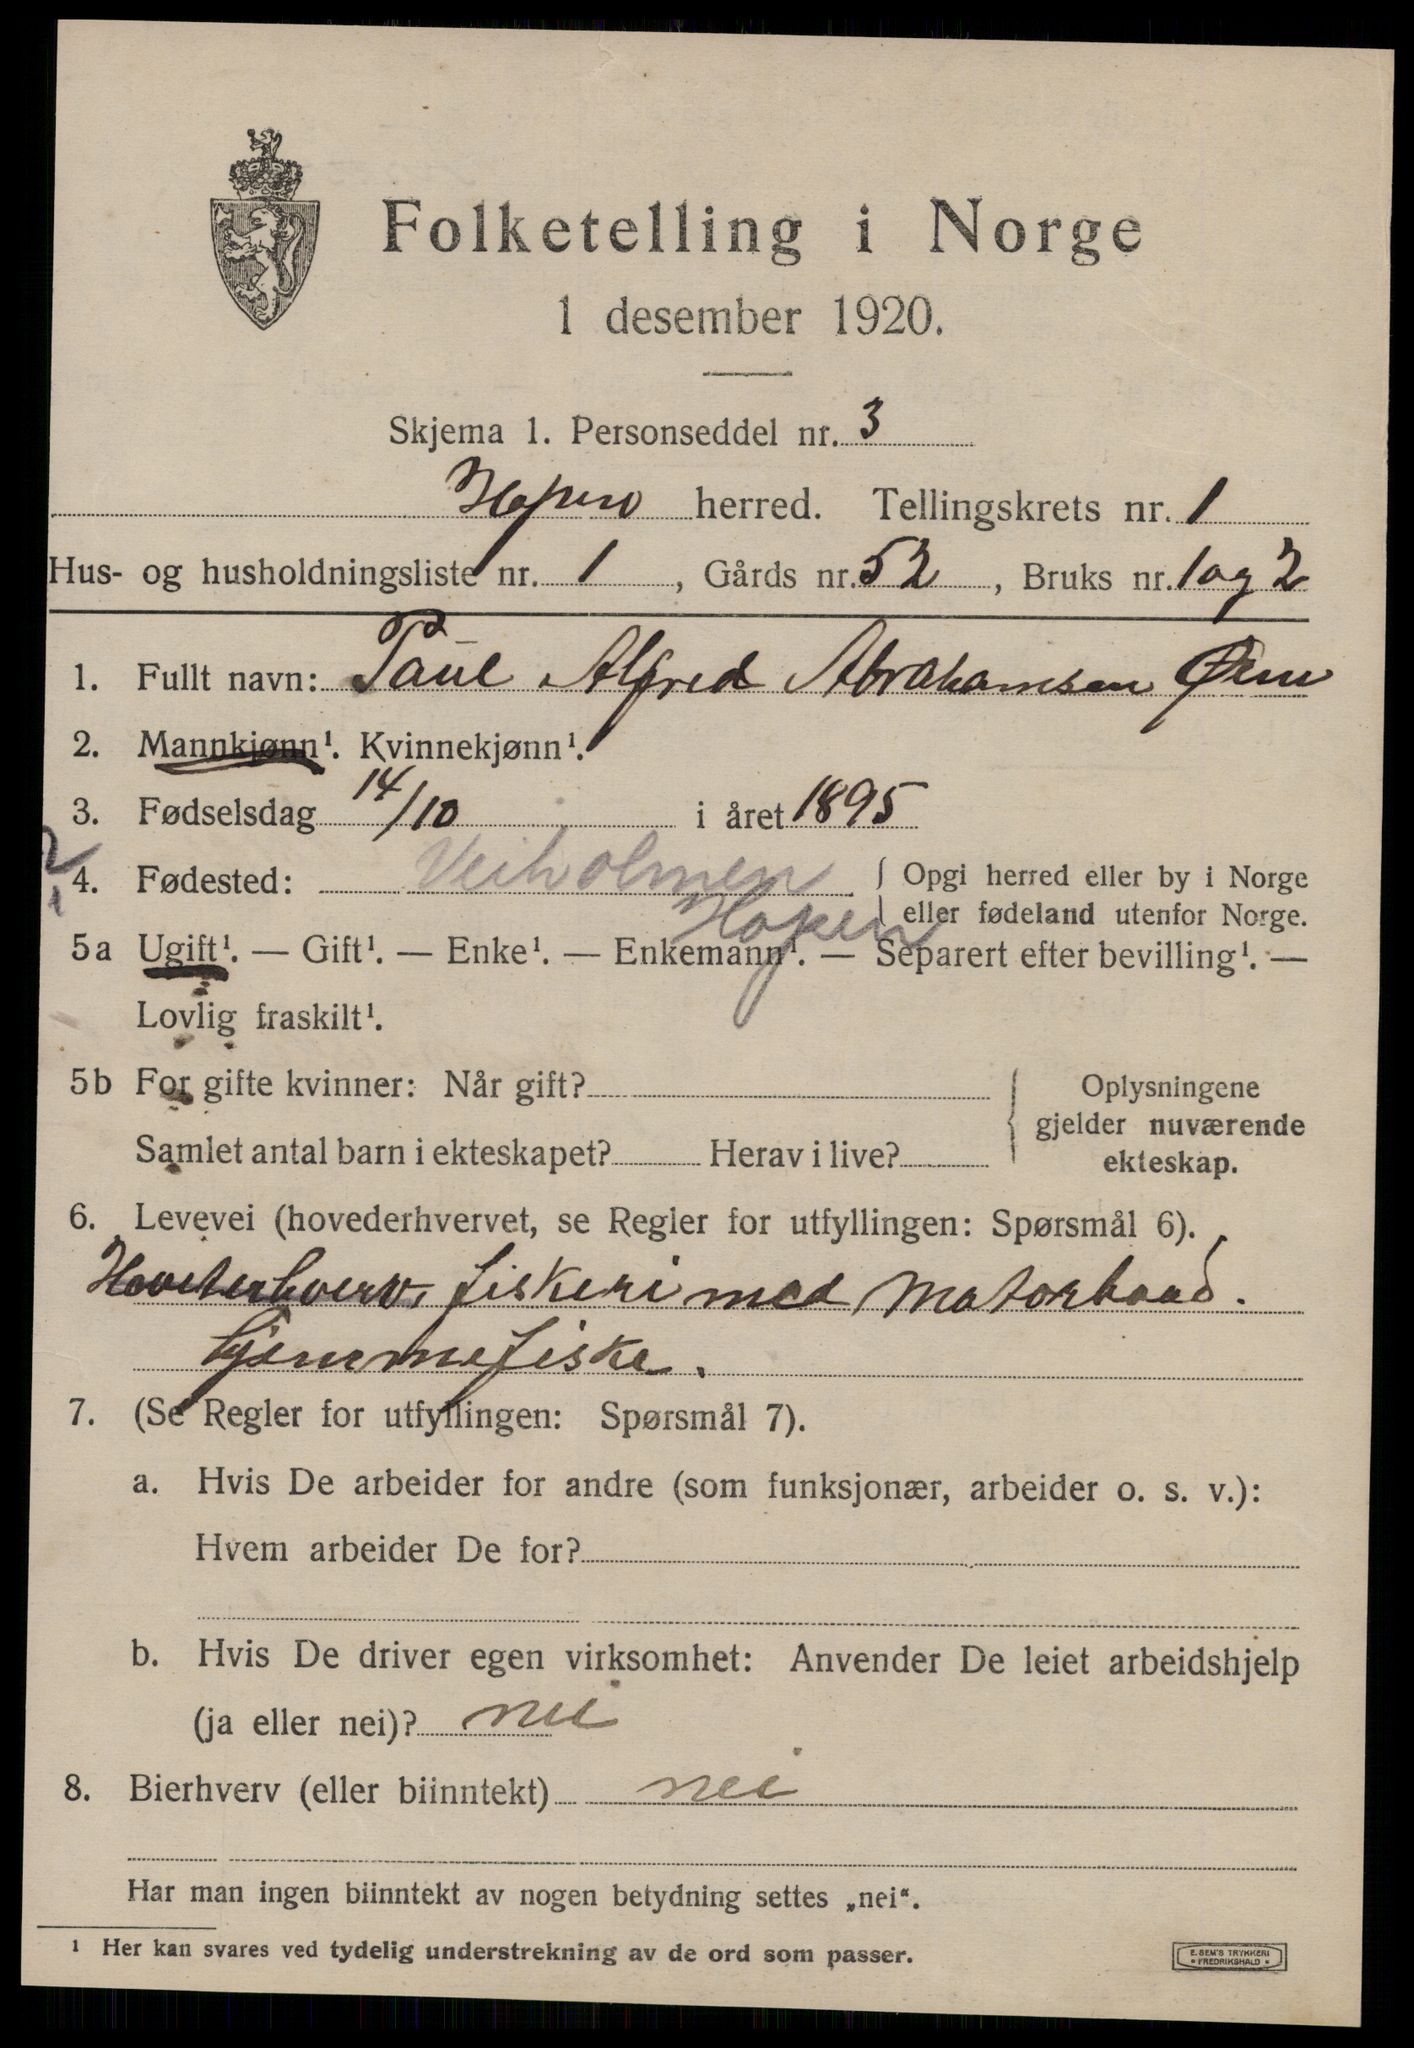 Folketelling i Norge
1 desember 1920.
Skjema 1. Personseddel nr. 3
Hopen herred. Tellingskrets nr. 1
Hus- og husholdningsliste nr. 1, Gårds nr. 52, Bruks nr. 1 og 2
1. Fullt navn: Paul Alfred Abrahamsen
2. Mannkjønn¹. Kvinnekjønn¹.
3. Fødselsdag 14/10 i året 1895
4. Fødested: Veiholmen { Opgi herred eller by i Norge
Hopen eller fødeland utenfor Norge.
5a Ugift¹. — Gift¹. — Enke¹. — Enkemann¹. — Separert efter bevilling¹. —
Lovlig fraskilt¹.
5b For gifte kvinner: Når gift? { Oplysningene
gjelder nuværende
Samlet antal barn i ekteskapet? Herav i live? ekteskap.
6. Levevei (hovederhvervet, se Regler for utfyllingen: Spørsmål 6).
Hoveterhverv, fiskeri med Motorbaad.
hjemmefiske.
7. (Se Regler for utfyllingen: Spørsmål 7).
a. Hvis De arbeider for andre (som funksjonær, arbeider o. s. v.):
Hvem arbeider De for?
b. Hvis De driver egen virksomhet: Anvender De leiet arbeidshjelp
(ja eller nei)? nei
8. Bierhverv (eller biinntekt) nei
Har man ingen biinntekt av nogen betydning settes „nei“.
¹ Her kan svares ved tydelig understrekning av de ord som passer.
E. SEM'S TRYKKERI
* FREDRIKSHALD *